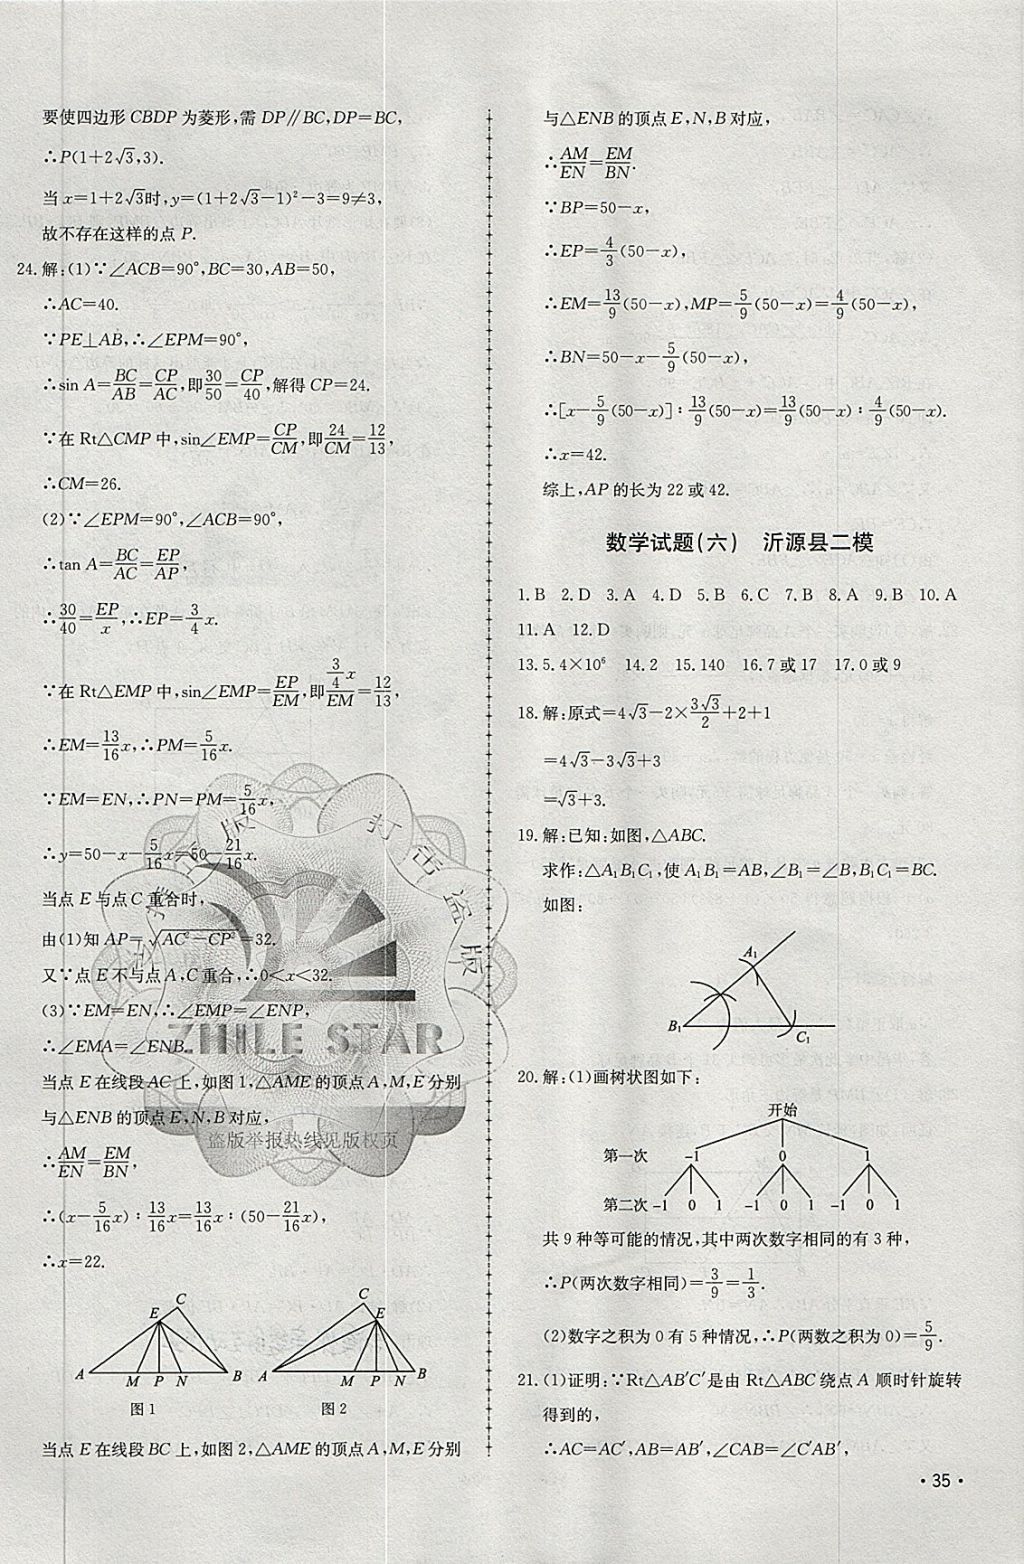 要使四边形 CBDP 为菱形,需 DP∥BC,DP=BC,
∴P(1+2√3,3).
当 x=1+2√3时,y=(1+2√3-1)²-3=9≠3,
故不存在这样的点 P.
24.解:(1)∵∠ACB=90°,BC=30,AB=50,
∴AC=40.
∵PE⊥AB,∴∠EPM=90°,
∴sin A=BC/AB=CP/AC,即30/50=CP/40,解得 CP=24.
∵在 Rt△CMP 中,sin∠EMP=CP/CM,即24/CM=12/13,
∴CM=26.
(2)∵∠EPM=90°,∠ACB=90°,
∴tan A=BC/AC=EP/AP,
∴30/40=EP/x,∴EP=3/4x.
∵在 Rt△EMP 中,sin∠EMP=EP/EM,即(3/4x)/EM=12/13,
∴EM=13/16x,∴PM=5/16x.
∵EM=EN,∴PN=PM=5/16x,
∴y=50-x-5/16x=50-21/16x.
当点 E 与点 C 重合时,
由(1)知 AP=√(AC²-CP²)=32.
又∵点 E 不与点 A,C 重合,∴0<x<32.
(3)∵EM=EN,∴∠EMP=∠ENP,
∴∠EMA=∠ENB.
当点 E 在线段 AC 上,如图 1,△AME 的顶点 A,M,E 分别
与△ENB 的顶点 E,N,B 对应,
∴AM/EN=EM/BN,
∴(x-5/16x):13/16x=13/16x:(50-21/16x),
∴x=22.
C
E
A M P N B
图 1
C
E
A M P N B
图 2
当点 E 在线段 BC 上,如图 2,△AME 的顶点 A,M,E 分别
与△ENB 的顶点 E,N,B 对应,
∴AM/EN=EM/BN.
∵BP=50-x,
∴EP=4/3(50-x),
∴EM=13/9(50-x),MP=5/9(50-x)=4/9(50-x),
∴BN=50-x-5/9(50-x),
∴[x-5/9(50-x)]:13/9(50-x)=13/9(50-x):4/9(50-x).
∴x=42.
综上,AP 的长为 22 或 42.
数学试题(六) 沂源县二模
1.B 2.D 3.A 4.D 5.B 6.C 7.B 8.A 9.B 10.A
11.A 12.D
13.5.4×10⁶ 14.2 15.140 16.7 或 17 17.0 或 9
18.解:原式=4√3-2×3√3/2+2+1
=4√3-3√3+3
=√3+3.
19.解:已知:如图,△ABC.
求作:△A₁B₁C₁,使 A₁B₁=AB,∠B₁=∠B,B₁C₁=BC.
如图:
A₁
B₁ C₁
20.解:(1)画树状图如下:
开始
第一次 -1 0 1
第二次 -1 0 1 -1 0 1 -1 0 1
共 9 种等可能的情况,其中两次数字相同的有 3 种,
∴P(两次数字相同)=3/9=1/3.
(2)数字之积为 0 有 5 种情况,∴P(两数之积为 0)=5/9.
21.(1)证明:∵Rt△AB′C′是由 Rt△ABC 绕点 A 顺时针旋转
得到的,
∴AC=AC′,AB=AB′,∠CAB=∠C′AB′,
·35·
打击盗版
ZHILE STAR
盗版举报热线见版权页